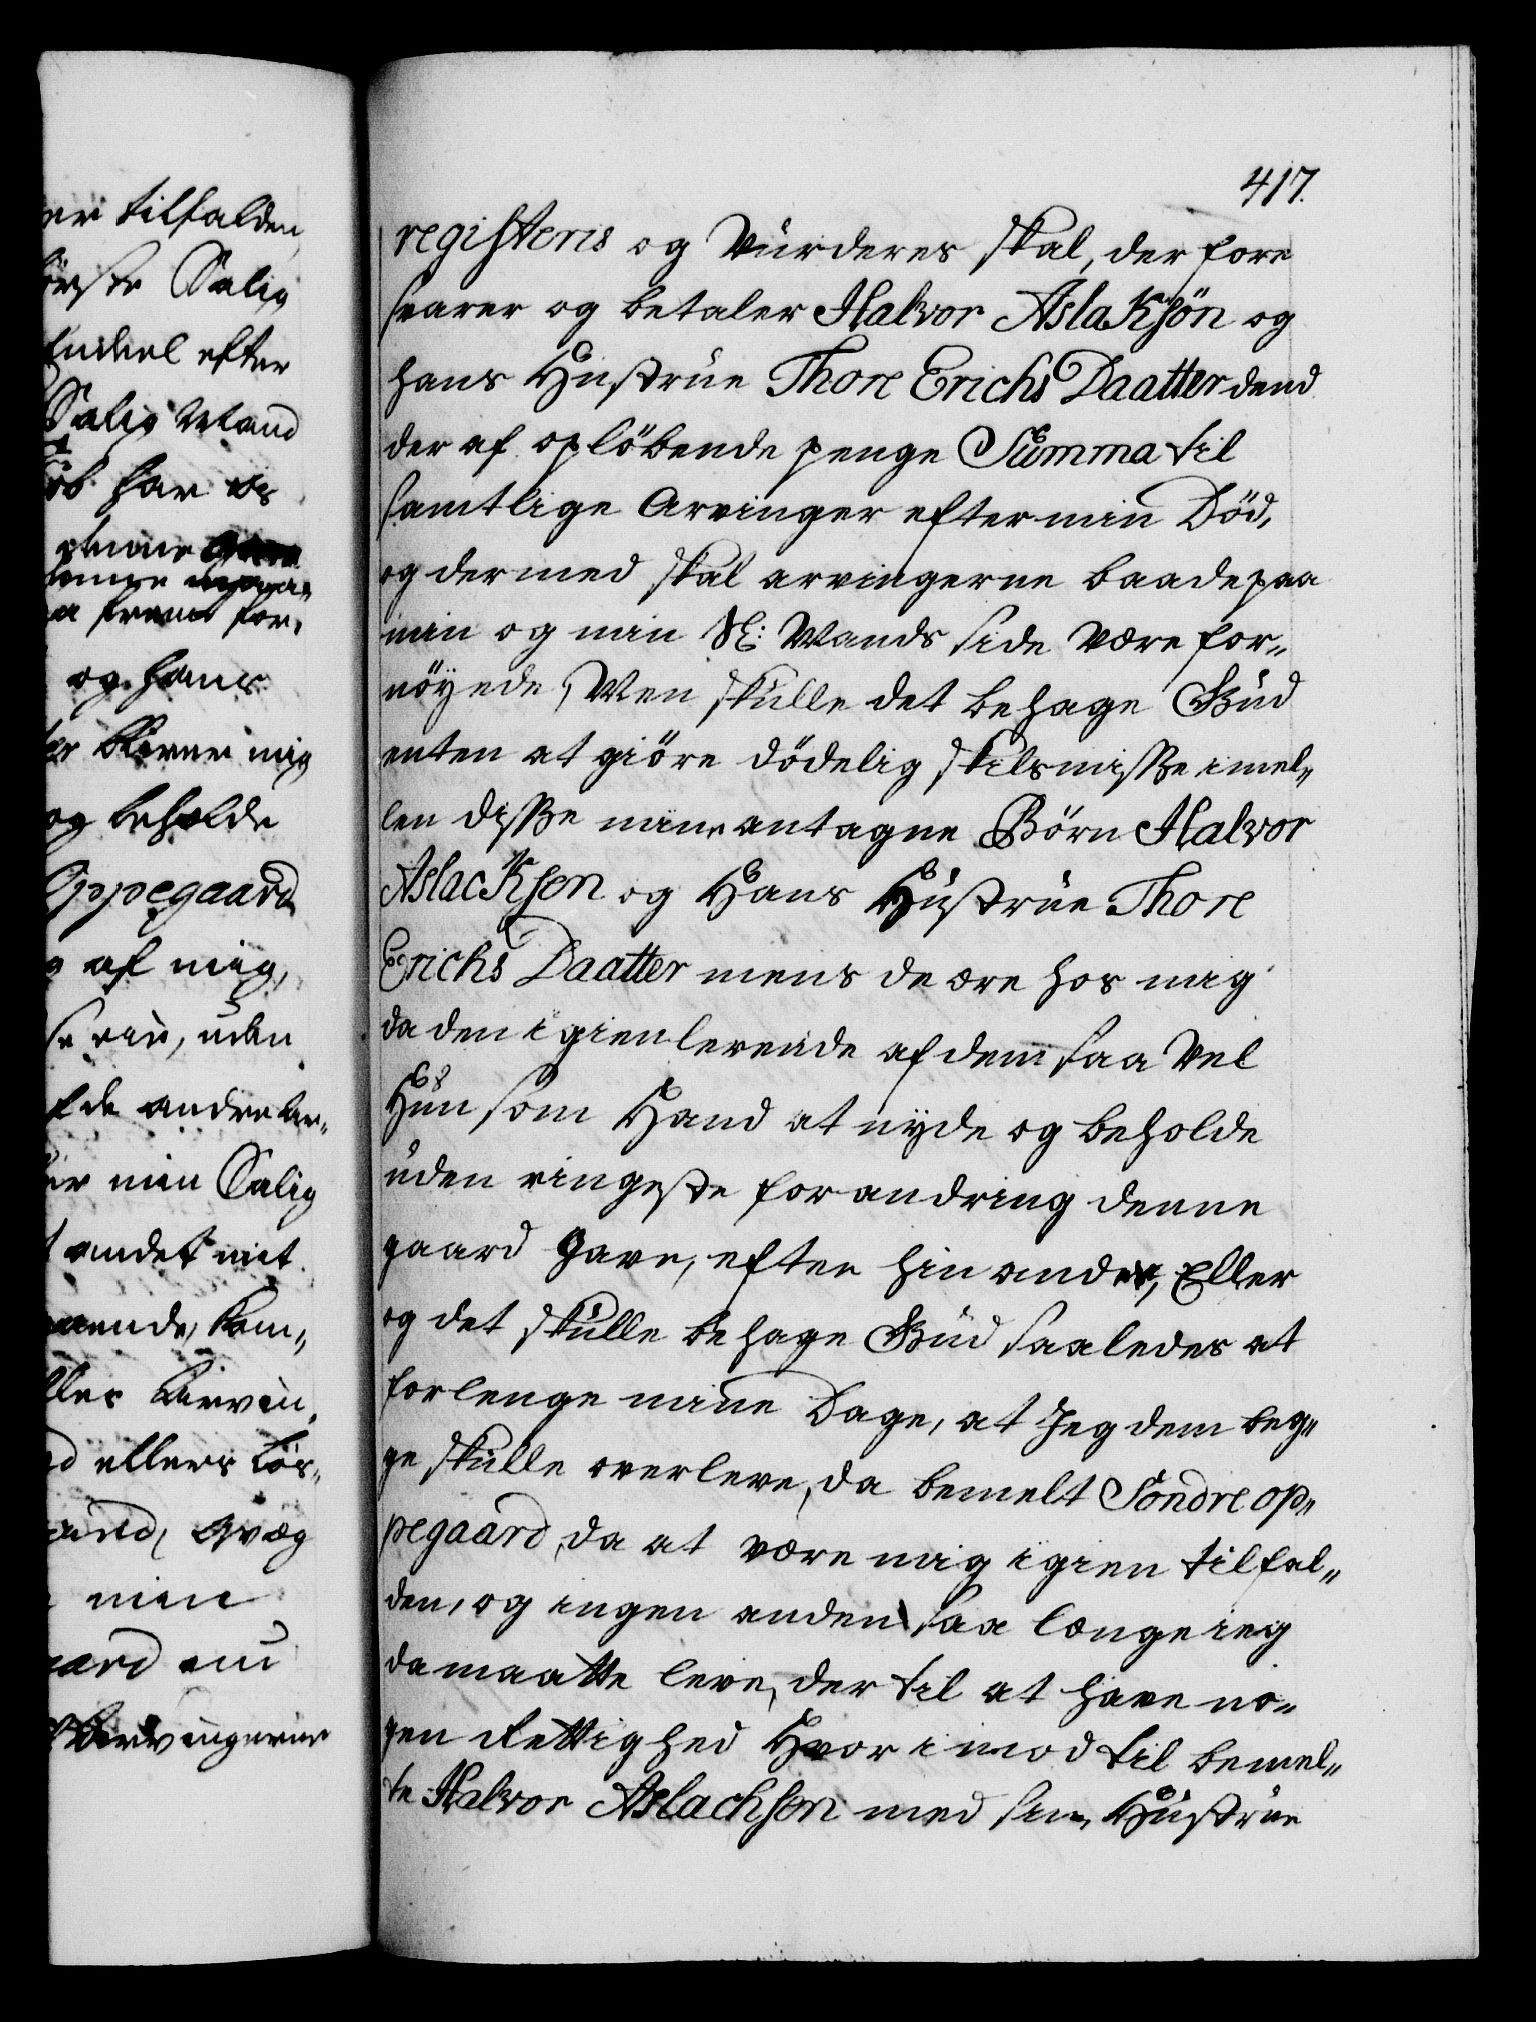 er tilfalden
Salig
efter
Salig Mand
har
og hans
mig
og beholde
Oppegaard
af mig,
uden
de andre
min Salig
andet mit
ellers
qvæg
min
417.
registeris og Vurderes skal, der fore
svarer og betaler Halvor Aslaksön og
hans Hustrue Thore Erichs Daatter dend
der af oplöbende penge Summa til
samtlige Arvinger efter min Död,
og dermed skal arvingerne baade paa
min og min Sl: Mands side være for„
nöyede, Men skulle det behage Gud
enten at giöre dödelig skilsmisse imel„
len disse mine antagne Börn Halvor
Aslacksen og Hans Hustrue Thore
Erichs Daatter mens de ere hos mig
da den igienlevende af dem saa vel
Hun som Hand at nyde og beholde
uden ringeste forandring denne
gaard Gave, efter hin anden, Eller
og det skulle behage Gud saaledes at
forlenge mine Dage, at Jeg dem beg„
ge skulle overleve, da bemelt Söndre op„
pegaard, da at være mig igien tilfal„
den, og ingen anden saa længe ieg
da maatte leve, der til at have no„
gen Rettighed Hvorimod til bemel„
te Halvor Aslachsen med sin Hustrue